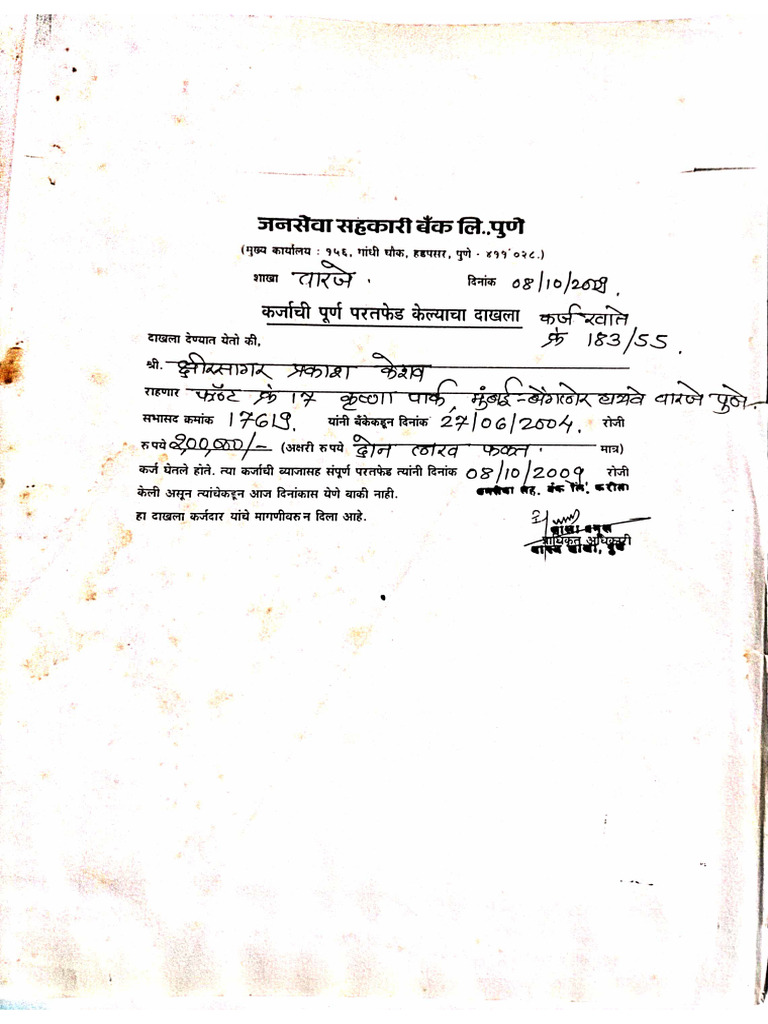 जनसेवा सहकारी बँक लि.,पुणे
(मुख्य कार्यालय : १५६, गांधी चौक, हडपसर, पुणे - ४११ ०२८.)
शाखा वारजे . दिनांक 08/10/2009.
कर्जाची पूर्ण परतफेड केल्याचा दाखला कर्ज खाते
क्रं 183/55.
दाखला देण्यात येतो की,
श्री. क्षीरसागर प्रकाश केशव
राहणार फ्लॅट क्रं 17 कृष्णा पार्क, मुंबई-बेंगलोर हायवे वारजे पुणे.
सभासद क्रमांक 17619 यांनी बँकेकडून दिनांक 27/06/2004. रोजी
रुपये 200,000/- (अक्षरी रुपये दोन लाख फक्त. मात्र)
कर्ज घेतले होते. त्या कर्जाची व्याजासह संपूर्ण परतफेड त्यांनी दिनांक 08/10/2009 रोजी
केली असून त्यांचेकडून आज दिनांकास येणे बाकी नाही. जनसेवा सह. बँक लि. करीता
हा दाखला कर्जदार यांचे मागणीवरुन दिला आहे.
प्राधिकृत अधिकारी